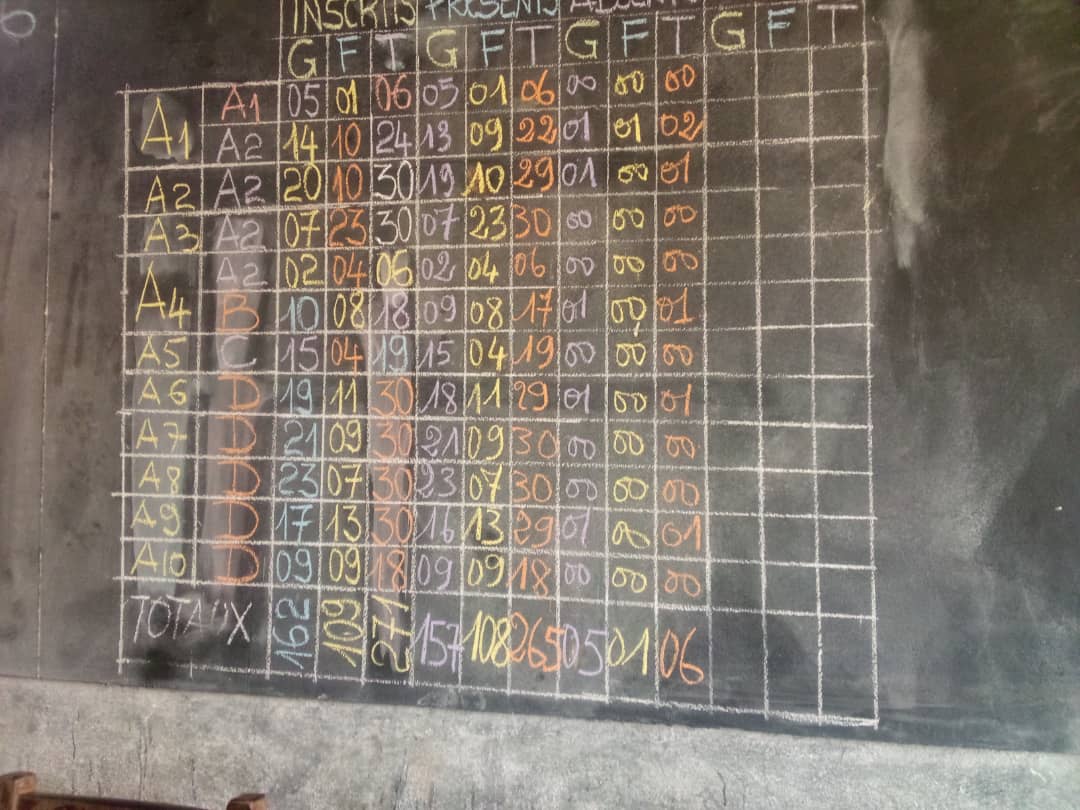 INSCRITS PRESENTS ABSENTS
G F T G F T G F T G F T
A1 A1 05 01 06 05 01 06 00 00 00
A2 14 10 24 13 09 22 01 01 02
A2 A2 20 10 30 19 10 29 01 00 01
A3 A2 07 23 30 07 23 30 00 00 00
A4 A2 02 04 06 02 04 06 00 00 00
B 10 08 18 09 08 17 01 00 01
A5 C 15 04 19 15 04 19 00 00 00
A6 D 19 11 30 18 11 29 01 00 01
A7 D 21 09 30 21 09 30 00 00 00
A8 D 23 07 30 23 07 30 00 00 00
A9 D 17 13 30 16 13 29 01 00 01
A10 D 09 09 18 09 09 18 00 00 00
TOTAUX 162 109 271 157 108 265 05 01 06